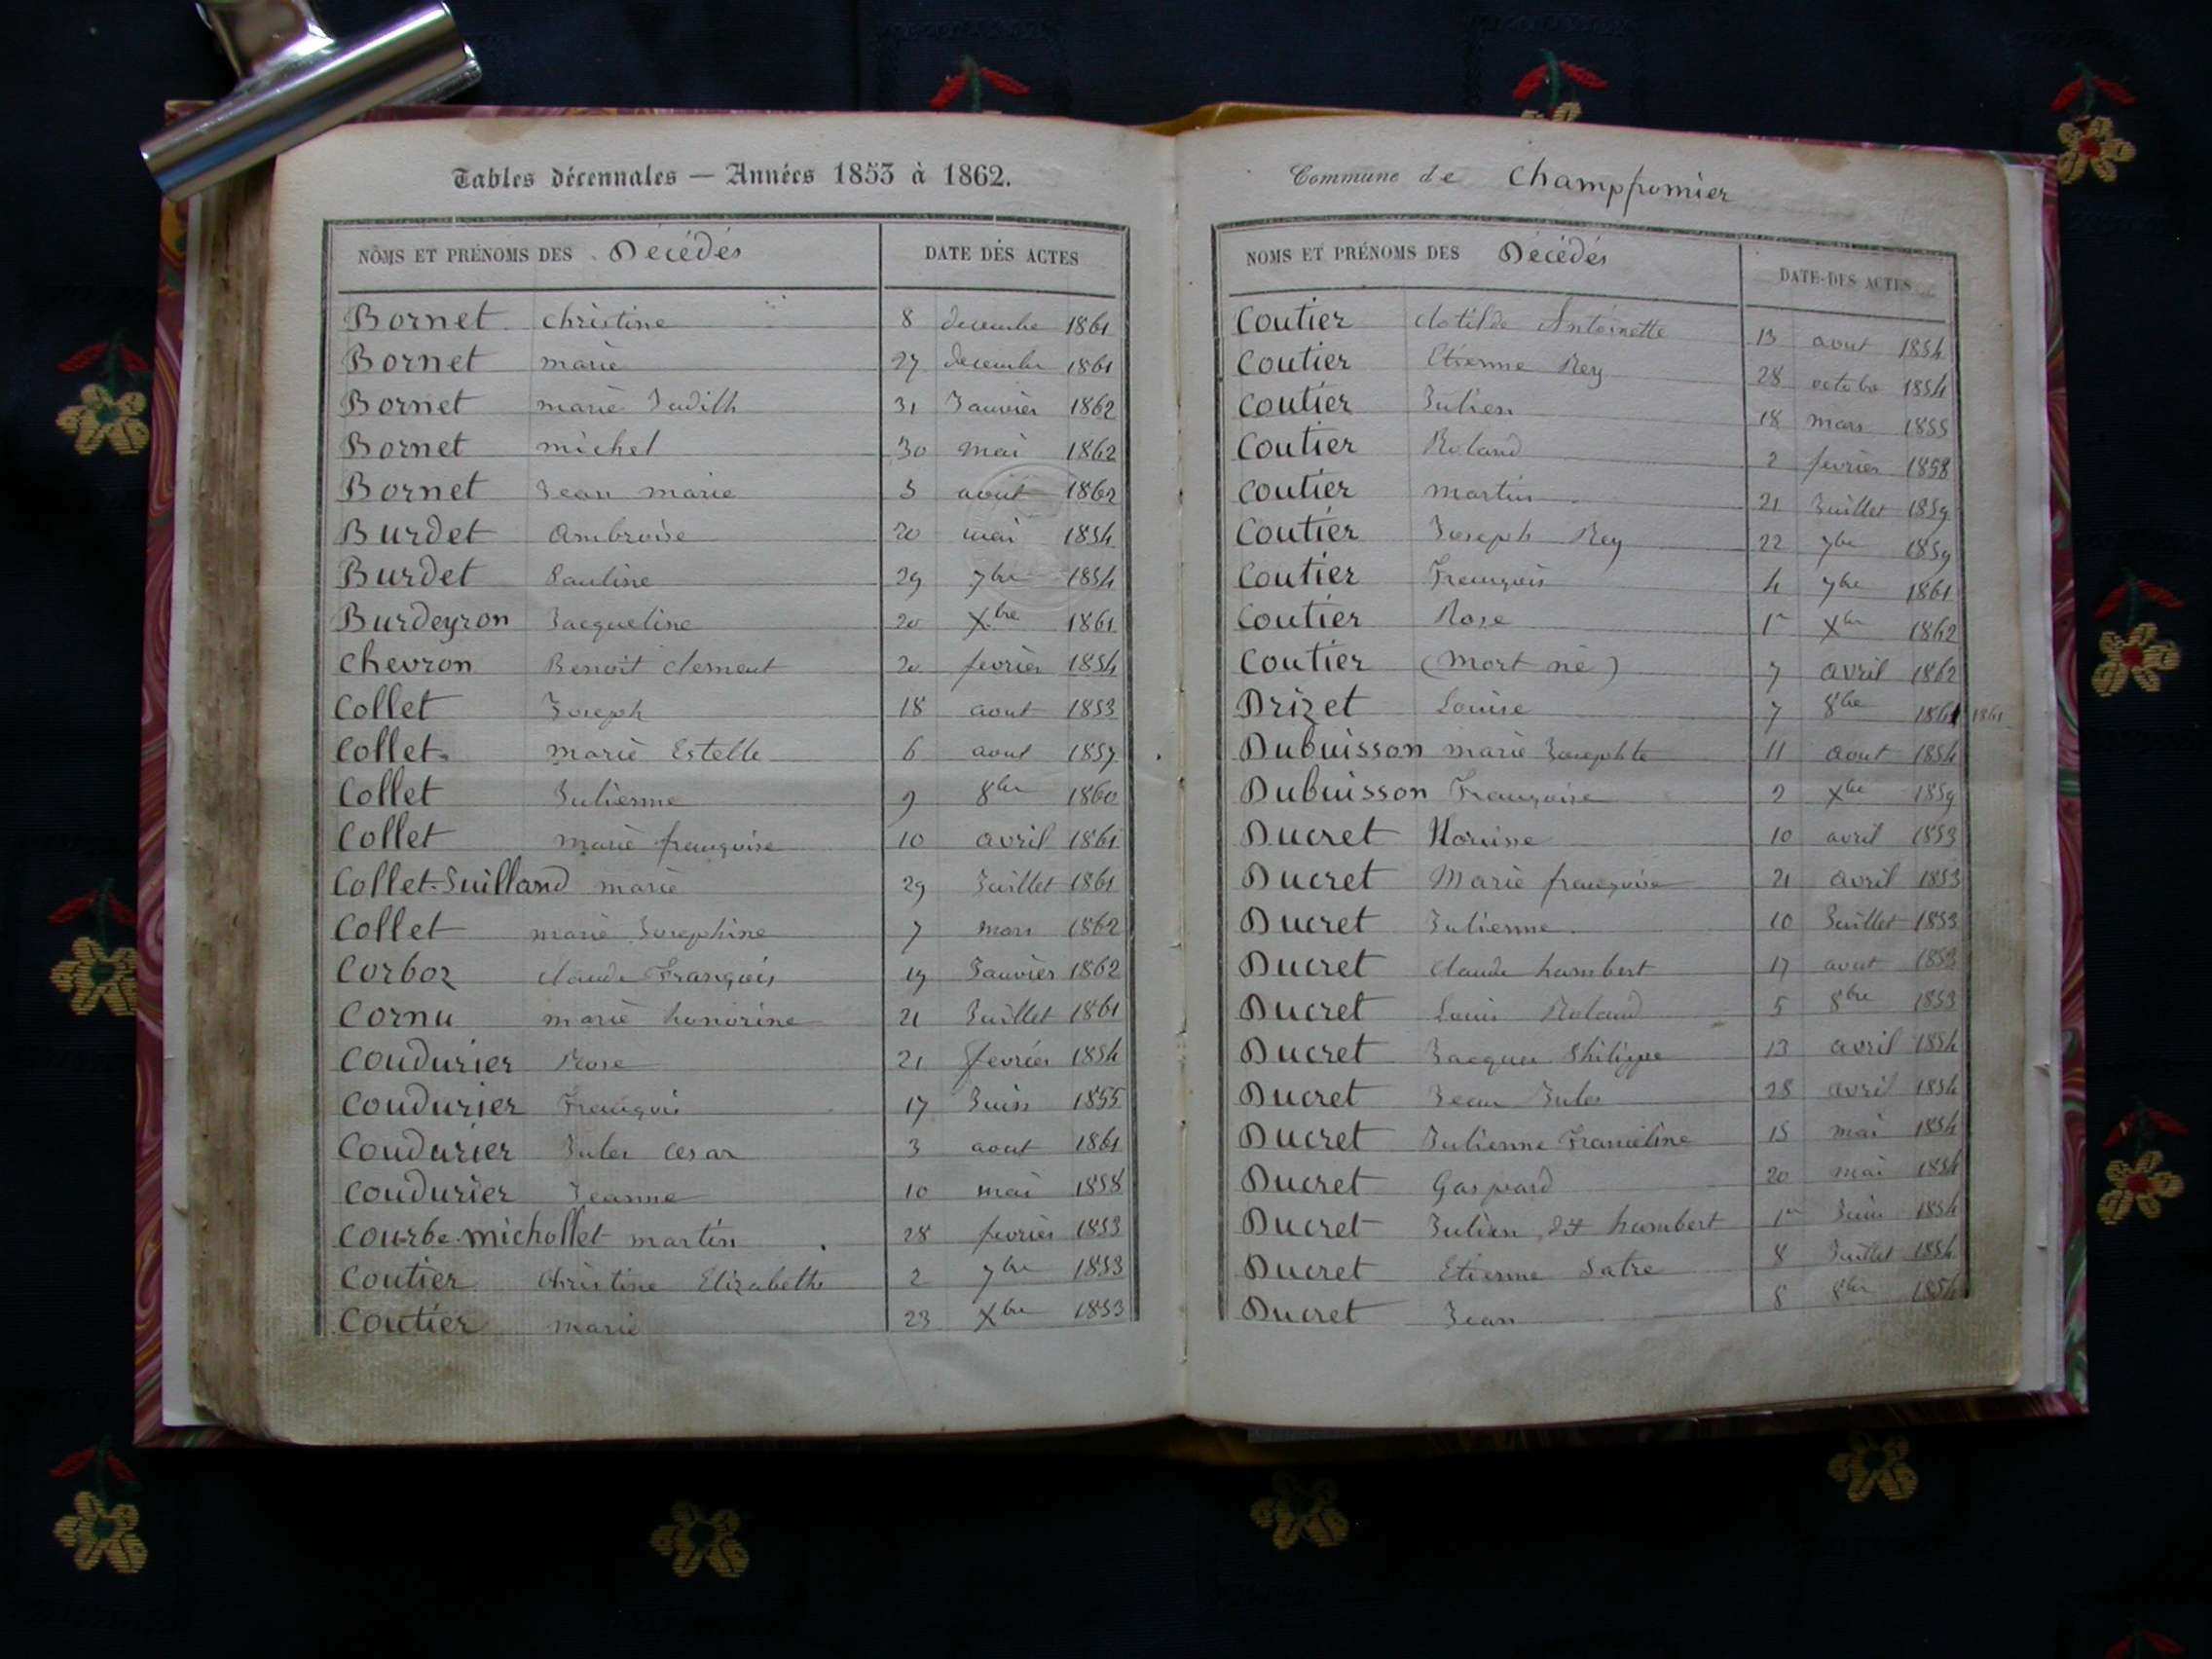 Tables décennales — Années 1853 à 1862.
NOMS ET PRÉNOMS DES Décédés DATE DES ACTES
Bornet christine 8 decembre 1861
Bornet marie 27 decembre 1861
Bornet marie Judith 31 Janvier 1862
Bornet michel 30 mai 1862
Bornet Jean marie 5 août 1862
Burdet Ambroise 20 mai 1854
Burdet Pauline 29 7bre 1854
Burdeyron Jacqueline 20 Xbre 1861
Chevron Benoit clement 20 fevrier 1854
Collet Joseph 18 aout 1853
Collet marie Estelle 6 aout 1857
Collet Julienne 9 8bre 1860
Collet marie françoise 10 avril 1861
Collet-Juilland marie 29 Juillet 1861
Collet marie Josephine 7 mars 1862
Corboz claude François 19 Janvier 1862
Cornu marie honorine 21 Juillet 1861
Coudurier Rose 21 fevrier 1854
Coudurier François 17 Juin 1855
Coudurier Jules Cesar 3 aout 1861
Coudurier Jeanne 10 mai 1858
Courbe-michollet martin 28 fevrier 1853
Coutier Christine Elizabethe 2 7bre 1853
Coutier marie 23 Xbre 1853
Commune de Champfromier
NOMS ET PRÉNOMS DES Décédés DATE DES ACTES
Coutier clotilde Antoinette 13 aout 1854
Coutier Etienne Rey 28 octobre 1854
Coutier Julien 18 mars 1855
Coutier Roland 2 fevrier 1858
Coutier martin 21 Juillet 1859
Coutier Joseph Rey 22 7bre 1859
Coutier François 4 7bre 1861
Coutier Rose 1er Xbre 1862
Coutier (mort né) 7 avril 1862
Drizet Louise 7 8bre 1861 1861
Dubuisson marie Josephte 11 aout 1854
Dubuisson Françoise 2 Xbre 1859
Ducret 10 avril 1853
Ducret Marie françoise 21 avril 1853
Ducret Julienne 10 Juillet 1853
Ducret claude hambert 17 aout 1853
Ducret Louis Roland 5 8bre 1853
Ducret Jacques Philippe 13 avril 1854
Ducret Jean Jules 28 avril 1854
Ducret Julienne Franceline 15 mai 1854
Ducret Gaspard 20 mai 1854
Ducret Julien dit hambert 1er Juin 1854
Ducret Etienne Satre 8 Juillet 1854
Ducret Jean 8 8bre 1854